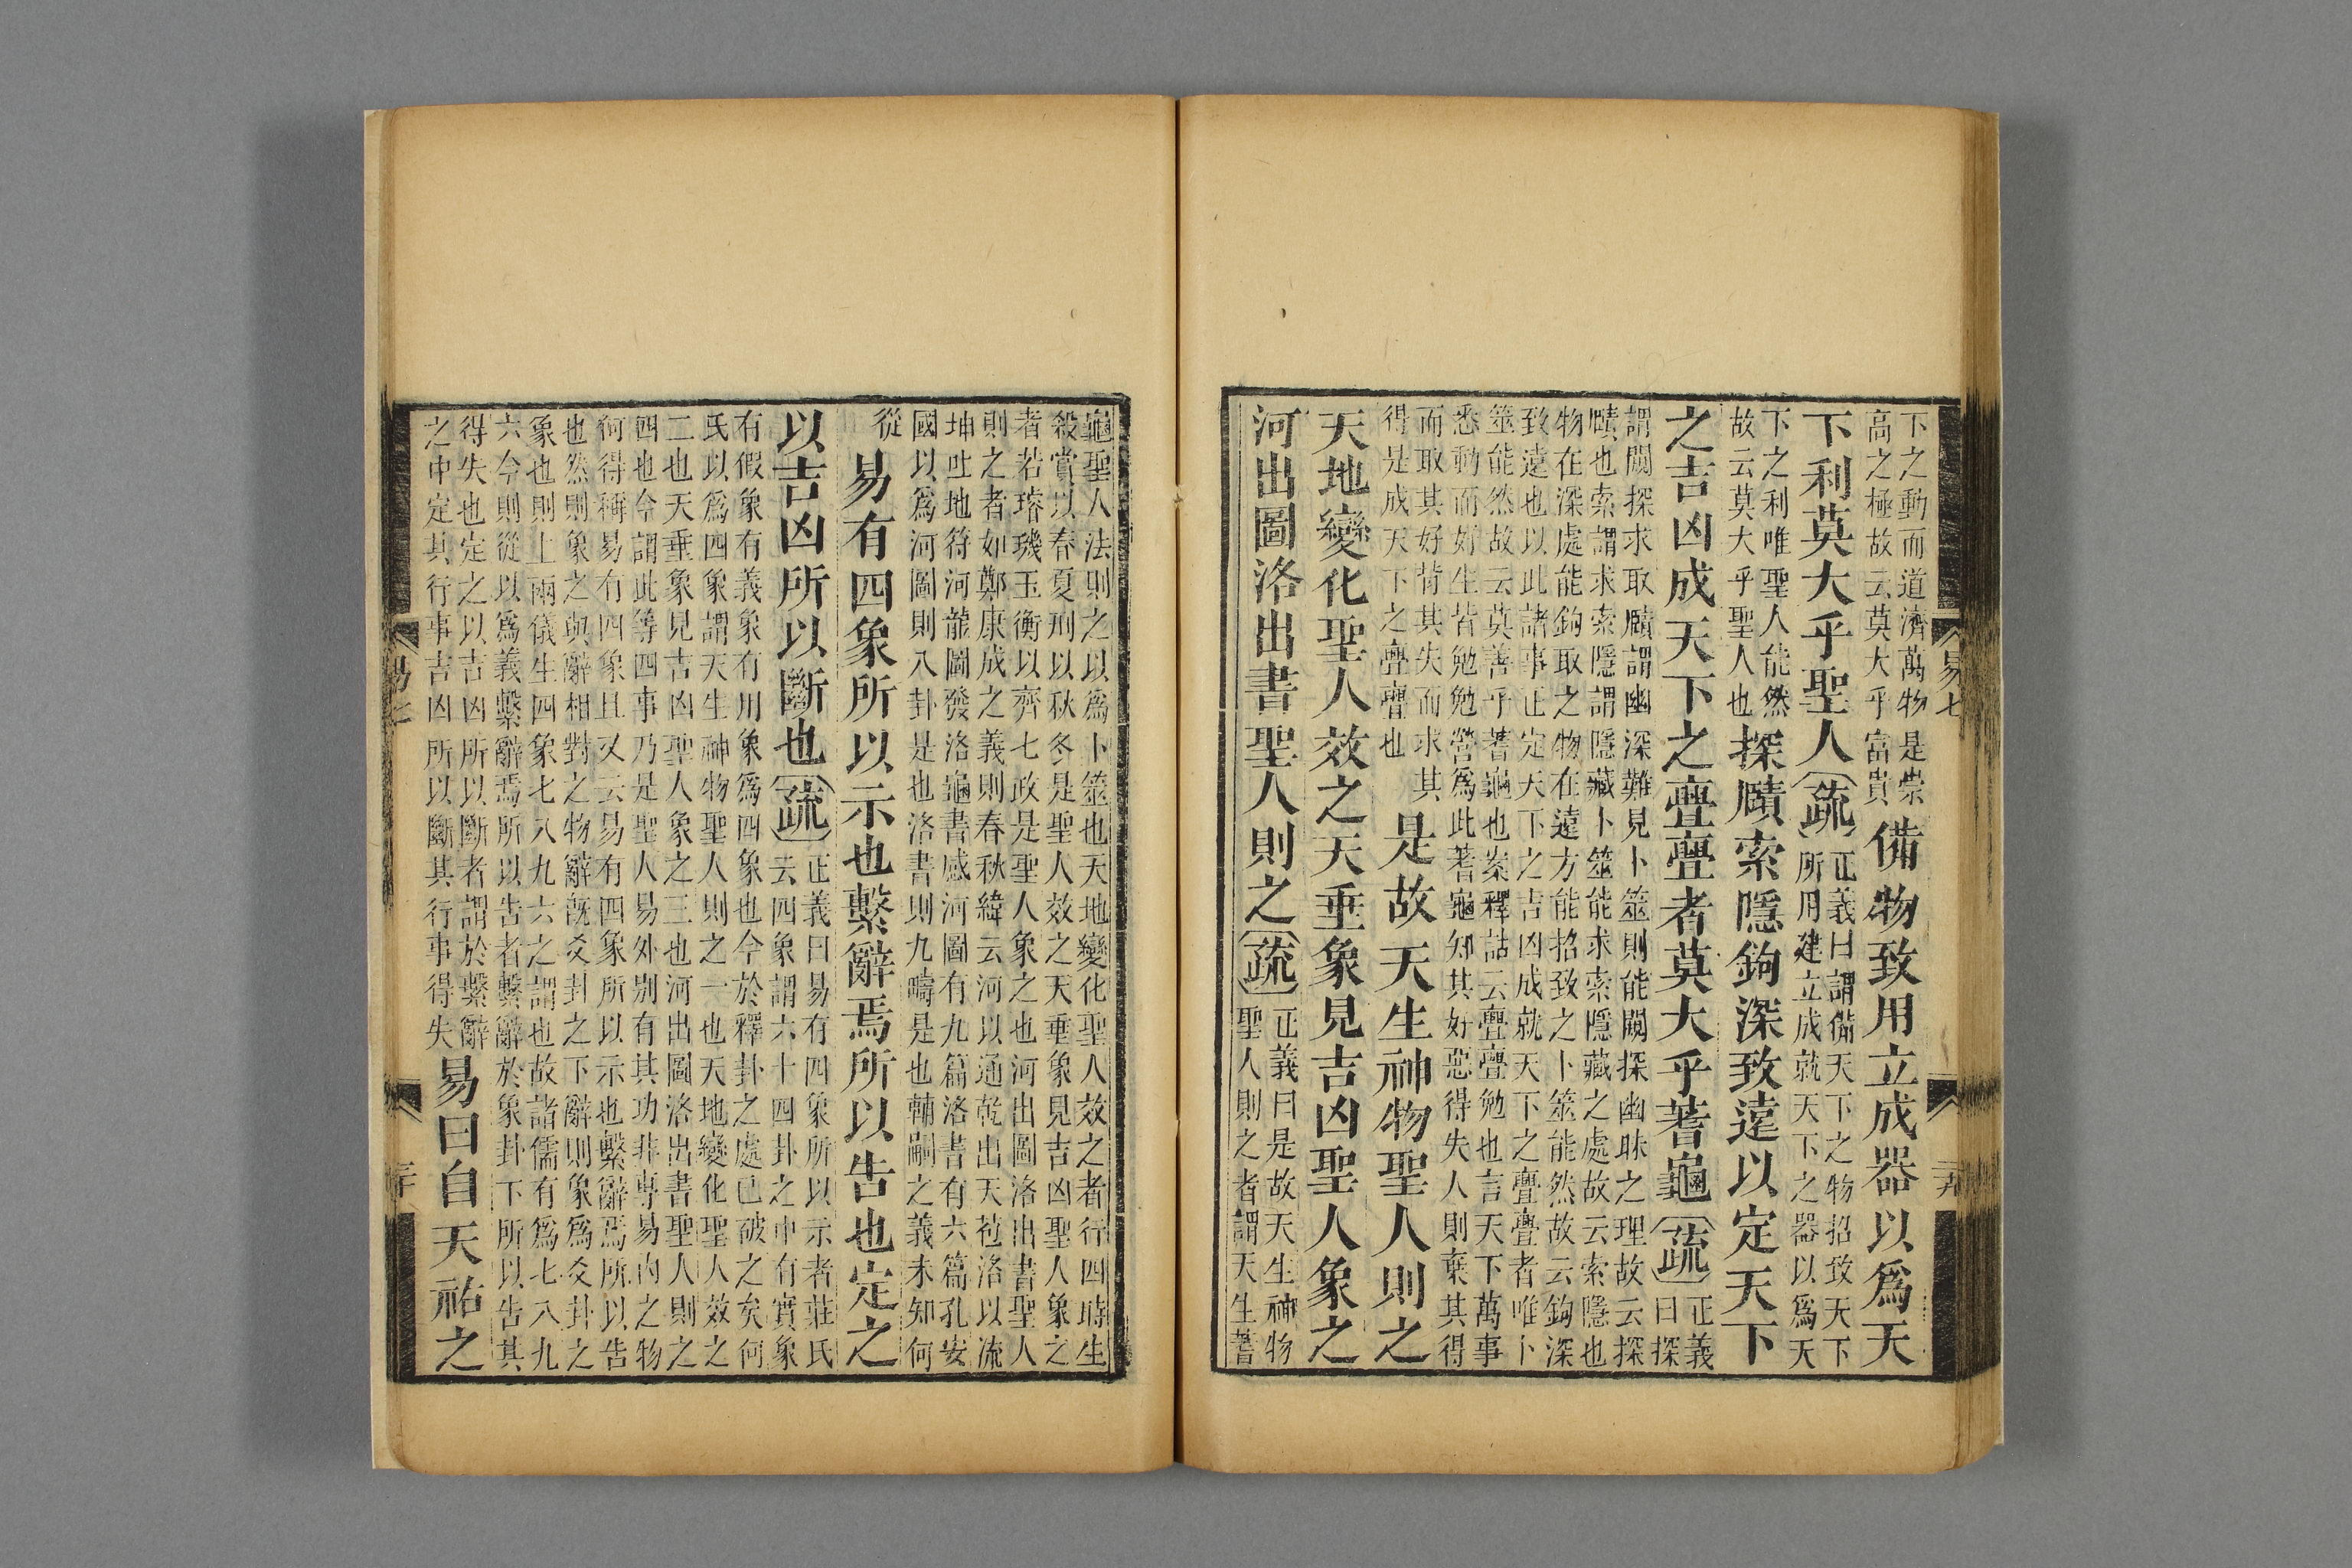 下之動而道濟萬物是崇
高之極故云莫大乎富貴
備物致用立成器以爲天
下利莫大乎聖人疏
正義曰謂備天下之物招致天下
所用建立成就天下之器以爲天
下之利唯聖人能然
故云莫大乎聖人也
探賾索隱鉤深致遠以定天下
之吉凶成天下之亹亹者莫大乎蓍龜疏
正義
曰探
謂闚探求取賾謂幽深難見卜筮則能闚探幽昧之理故云探
賾也索謂求索隱謂隱藏卜筮能求索隱藏之處故云索隱也
物在深處能鉤取之物在遠方能招致之卜筮能然故云鉤深
致遠也以此諸事正定天下之吉凶成就天下之亹亹者唯卜
筮能然故云莫善乎蓍龜也案釋詁云亹亹勉也言天下萬事
悉動而好生皆勉勉營爲此蓍龜知其好惡得失人則棄其得
而取其好背其失而求其
得是成天下之亹亹也
是故天生神物聖人則之
天地變化聖人效之天垂象見吉凶聖人象之
河出圖洛出書聖人則之疏
正義曰是故天生神物
聖人則之者謂天生蓍
易七
龜聖人法則之以爲卜筮也天地變化聖人效之者行四時生
殺賞以春夏刑以秋冬是聖人效之天垂象見吉凶聖人象之
者若璿璣玉衡以齊七政是聖人象之也河出圖洛出書聖人
則之者如鄭康成之義則春秋緯云河以通乾出天苞洛以流
坤吐地符河龍圖發洛龜書感河圖有九篇洛書有六篇孔安
國以爲河圖則八卦是也洛書則九疇是也輔嗣之義未知何
從
易有四象所以示也繫辭焉所以告也定之
以吉凶所以斷也疏
正義曰易有四象所以示者莊氏
云四象謂六十四卦之中有實象
有假象有義象有用象爲四象也今於釋卦之處已破之矣何
氏以爲四象謂天生神物聖人則之一也天地變化聖人效之
二也天垂象見吉凶聖人象之三也河出圖洛出書聖人則之
四也今謂此等四事乃是聖人易外別有其功非專易內之物
何得稱易有四象且又云易有四象所以示也繫辭焉所以告
也然則象之與辭相對之物辭既爻卦之下辭則象爲爻卦之
象也則上兩儀生四象七八九六之謂也故諸儒有爲七八九
六今則從以爲義繫辭焉所以告者繫辭於象卦下所以告其
得失也定之以吉凶所以斷者謂於繫辭
之中定其行事吉凶所以斷其行事得失
易曰自天祐之